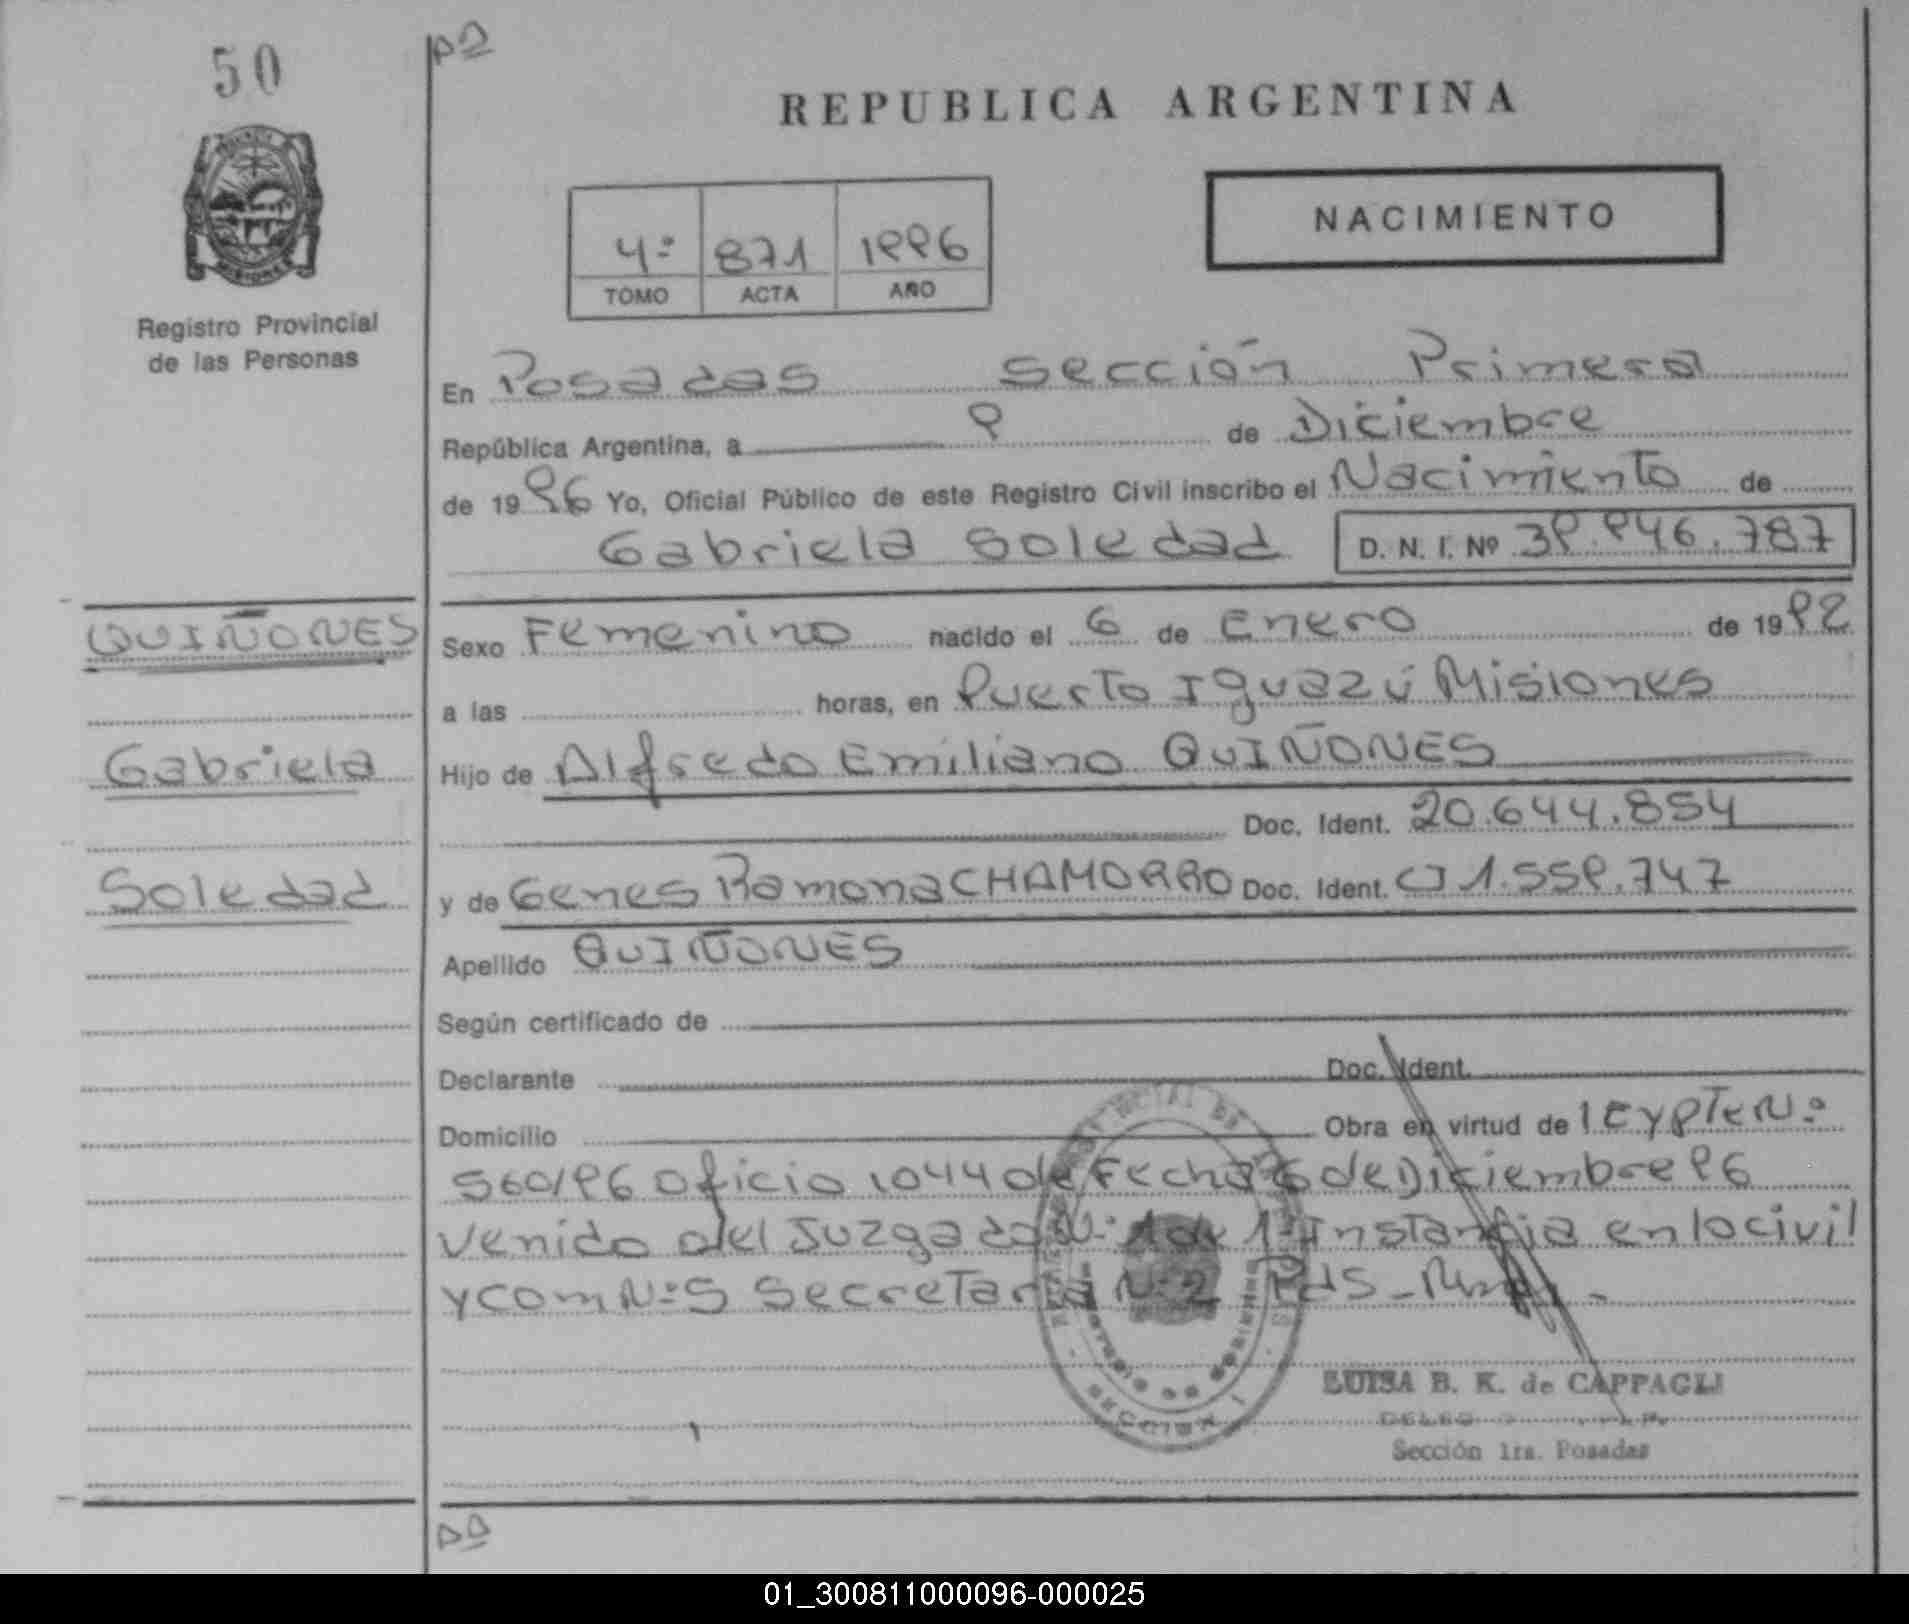 50
REPUBLICA ARGENTINA
NACIMIENTO
4º 871 1996
TOMO ACTA AÑO
Registro Provincial
de las Personas
MISIONES
En Posadas sección Primera
República Argentina, a 9 de Diciembre
de 1996 Yo, Oficial Público de este Registro Civil inscribo el Nacimiento de
Gabriela Soledad D. N. I. Nº 39.946.787
QUIÑONES
Gabriela
Soledad
Sexo Femenino nacido el 6 de Enero de 1992
a las horas, en Puerto Iguazú Misiones
Hijo de Alfredo Emiliano QUIÑONES
Doc. Ident. 20.644.854
y de Genes Ramona CHAMORRO Doc. Ident. CI 1.559.747
Apellido QUIÑONES
Según certificado de
Declarante Doc. Ident.
Domicilio Obra en virtud de
560/96 Oficio 1044 de Fecha 6 de Diciembre 96
venido del Juzgado Nº 1 de 1º Instancia en lo civil
y Com Nº 5 Secretaria Nº 2 Pds
LUISA B. K. de CAPPAGLI
Sección 1ra. Posadas
SECCION 1
01_300811000096-000025